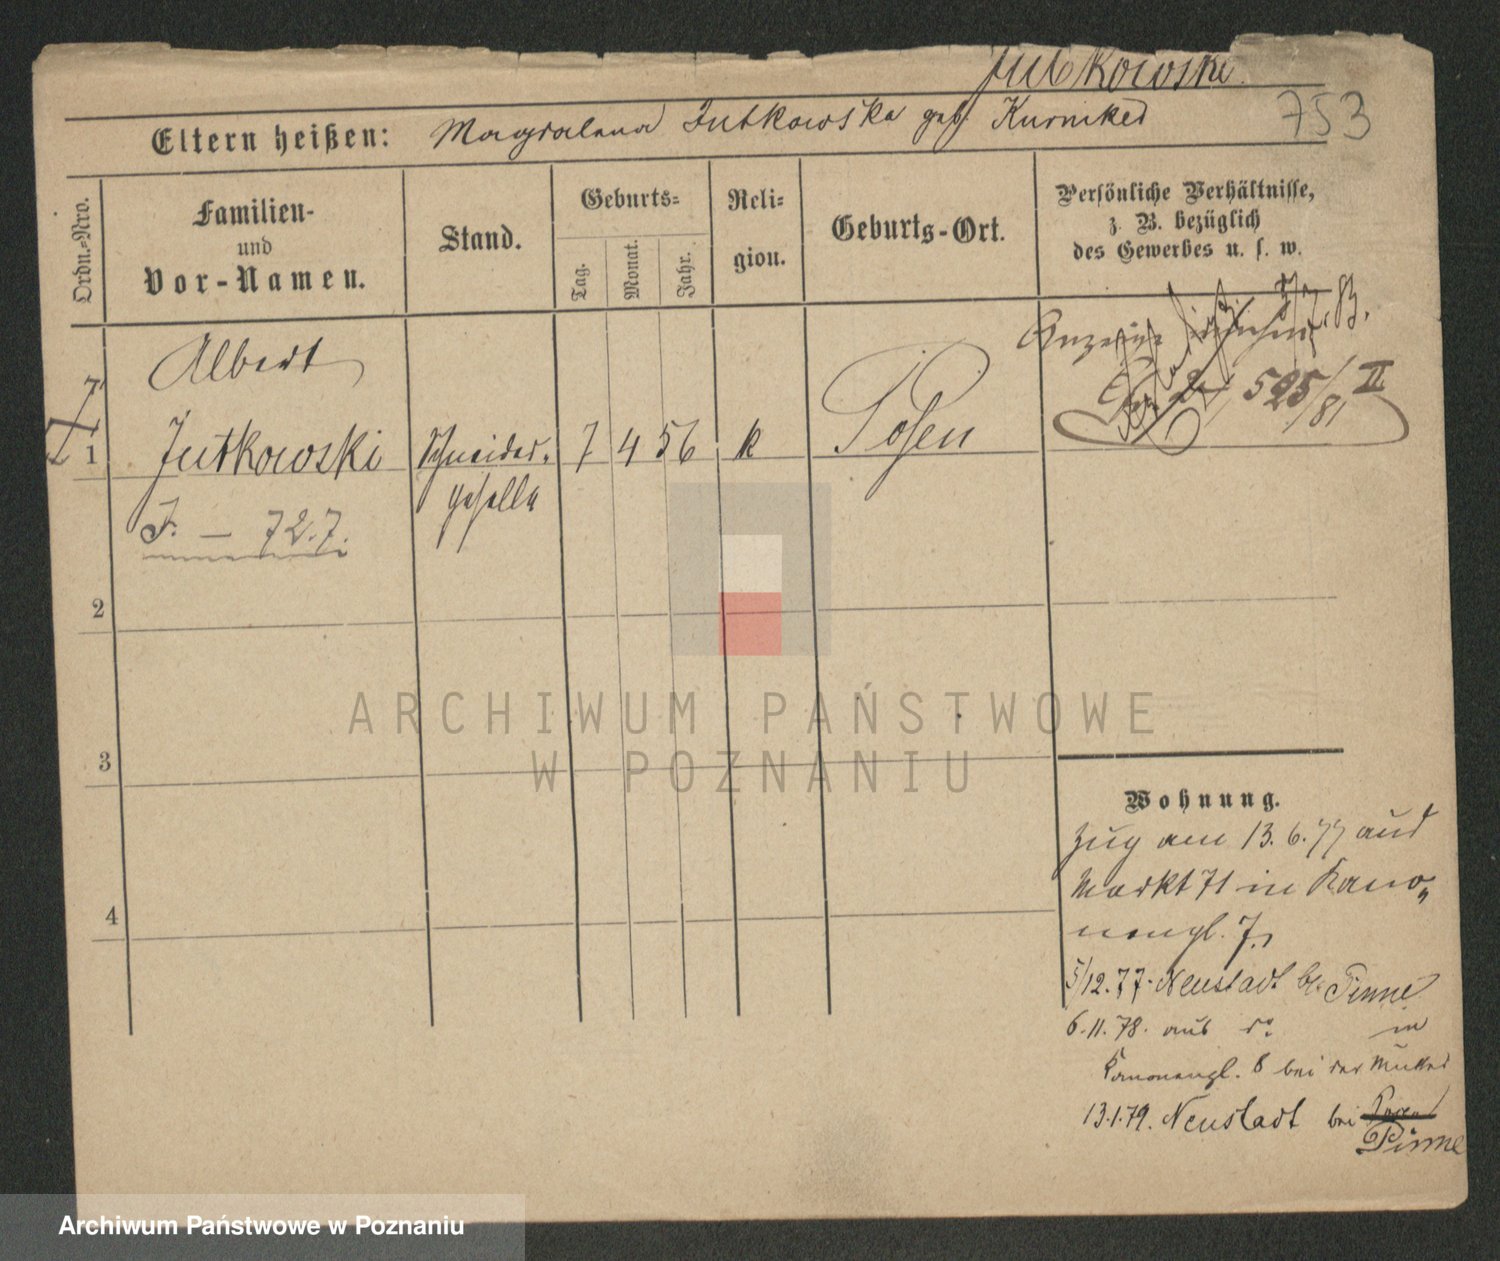 Jutkowski.
753
Eltern heißen: Magdalena Jutkowska geb. Kurniker
Ordn.-Nro.
Familien-
und
Vor-Namen.
Stand.
Geburts-
Tag.
Monat.
Jahr.
Reli-
gion.
Geburts-Ort.
Persönliche Verhältnisse,
z. B. bezüglich
des Gewerbes u. s. w.
Albert
1 Jutkowski Schneider- 7 4 56 k Posen
geselle
J. — 72.7.
525/81 II
2
3
4
Wohnung.
Zug am 13.6.77 aus
Markt 71 in Kano-
nengl. 7.
5/12.77. Neustadt b. Pinne
6.11.78. aus do in
Kanonengl. 8 bei der Mutter
13.1.79. Neustadt bei Posen
Pinne
ARCHIWUM PAŃSTWOWE
W POZNANIU
Archiwum Państwowe w Poznaniu